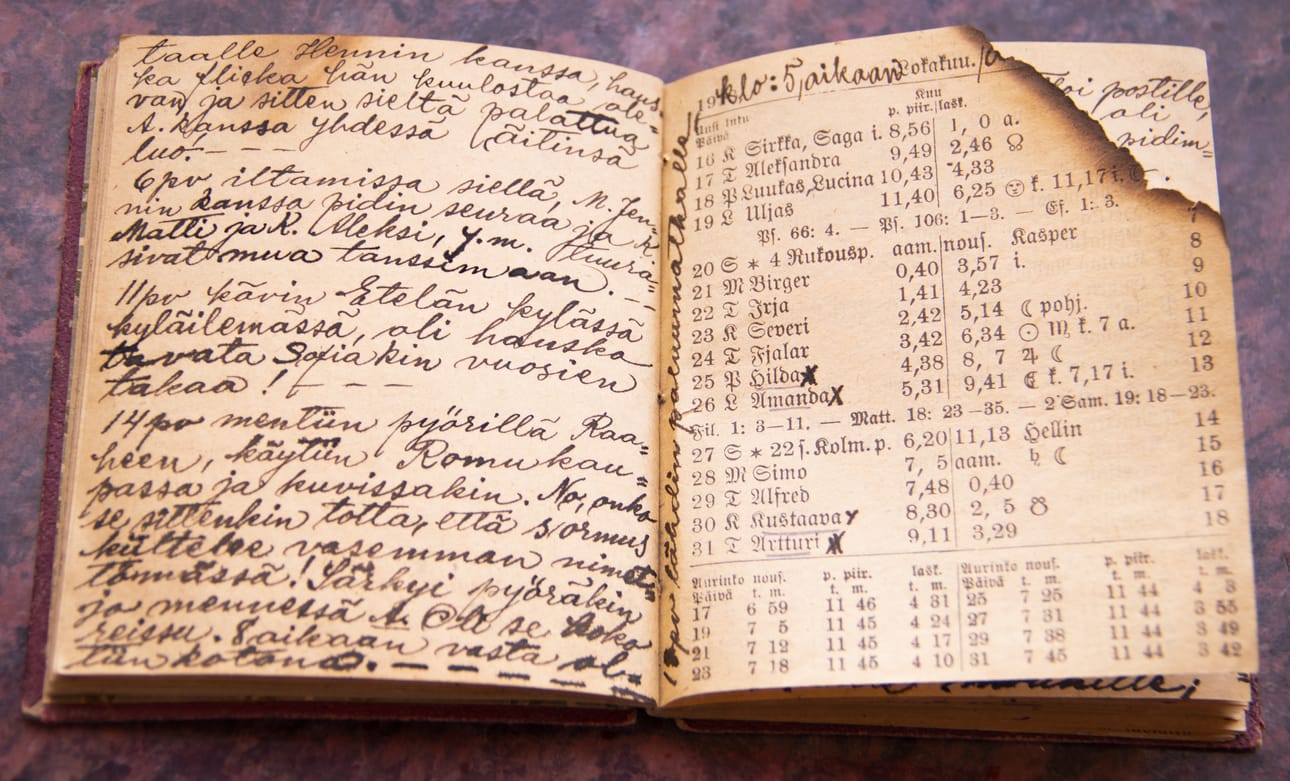 taalle Hennin kanssa, haus=
ka flicka hän kuulostaa ole=
van, ja sitten sieltä palattua
A. kanssa yhdessä (äitinsä
luo. - - -
6pv iltamissa siellä, M. Jen=
nin kanssa pidin seuraa, ja K.
Matti ja K. Aleksi, y.m. Huura=
sivat mua tanssimaan. - -
11pv kävin Etelän kylässä
kyläilemässä, oli hauska
tavata Sofiakin vuosien
takaa! - - -
14pv mentiin pyörillä Raa=
heen, käytiin Romu kau=
passa ja kuvissakin. No, onko
se sittenkin totta, että sormus
kiiltelee vasemman nimet=
tömässä! Särkyi pyöräkin
jo mennessä A. Oli se koko
reissu. 8 aikaan vasta ol=
tiin kotona. - - - -
18pv lähdin paluumatkalle
klo: 5, aikaan
19 Lokakuu.
Uusi luku Kuu
Päivä p. piir. lask.
16 K Sirkka, Saga i. 8,56 1, 0 a.
17 T Aleksandra 9,49 2,46 ☊
18 P Luukas, Lucina 10,43 4,33
19 L Uljas 11,40 6,25 k. 11,17 i.
Ps. 66: 4. — Ps. 106: 1—3. — Ef. 1: 3.
20 S * 4 Rukousp. aam. nous. Kasper
21 M Birger 0,40 3,57 i.
22 T Irja 1,41 4,23
23 K Severi 2,42 5,14 ☾ pohj.
24 T Fjalar 3,42 6,34 ☉ ♏ k. 7 a.
25 P Hilda X 4,38 8, 7 ♃ ☾
26 L Amanda X 5,31 9,41 ☾ k. 7,17 i.
Fil. 1: 3—11. — Matt. 18: 23—35. — 2 Sam. 19: 18—23.
27 S * 22 s. Kolm. p. 6,20 11,13 Hellin
28 M Simo 7, 5 aam. ♄ ☾
29 T Alfred 7,48 0,40
30 K Kustaava x 8,30 2, 5 ☋
31 T Artturi X 9,11 3,29
Aurinko nous. p. piir. lask. Aurinko nous. p. piir. lask.
Päivä t. m. t. m. t. m. Päivä t. m. t. m. t. m.
17 6 59 11 46 4 31 25 7 25 11 44 4 3
19 7 5 11 45 4 24 27 7 31 11 44 3 55
21 7 12 11 45 4 17 29 7 38 11 44 3 49
23 7 18 11 45 4 10 31 7 45 11 44 3 42
postille,
oli
pidim=
7
8
9
10
11
12
13
14
15
16
17
18